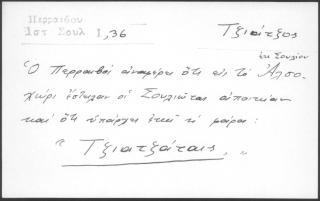 Περραιβου
Ιστ Σουλ Ι, 36
Τζιάτζος
ἐκ Σουλίου
Ὁ Περραιβός ἀναφέρει ὅτι εἰς τό Ἀλπο-
χώρι ἔστειλαν οἱ Σουλιῶται ἀποικίαν
καί ὅτι ὑπάρχει ἐκεῖ ἡ φάρα:
"Τζιατζάταις"